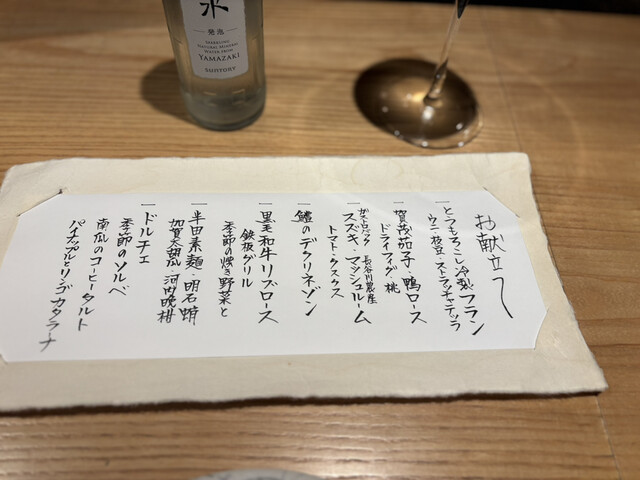 水
発泡
SPARKLING
NATURAL MINERAL
WATER FROM
YAMAZAKI
SUNTORY
お献立て
一 とうもろこし冷製フラン
ウニ・枝豆・ストラッチャテッラ
一 賀茂茄子・鴨ロース
ドライフィグ 桃
一 ガストロバック 長谷川農産
スズキ・マッシュルーム
トマト・クスクス
一 鱧のデクリネゾン
一 黒毛和牛リブロース
鉄板グリル
季節の焼き野菜と
一 半田素麺・明石蛸
加賀太胡瓜・河内晩柑
一 ドルチェ
季節のソルベ
南瓜のコーヒータルト
パイナップルとリンゴ カタラーナ